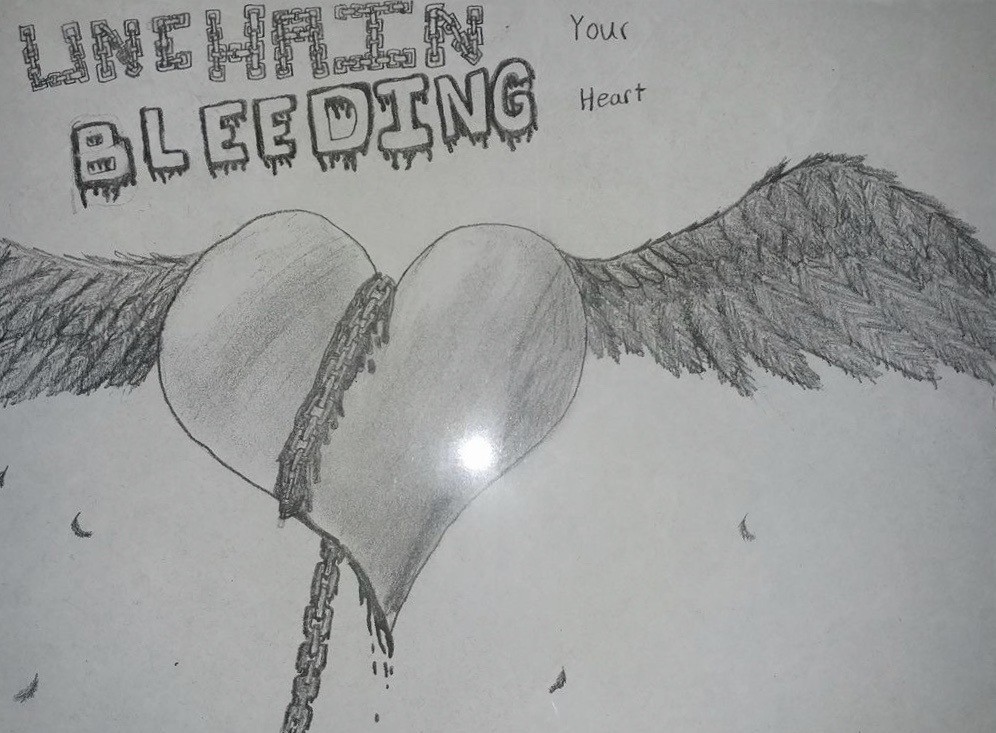 UNCHAIN Your
BLEEDING Heart